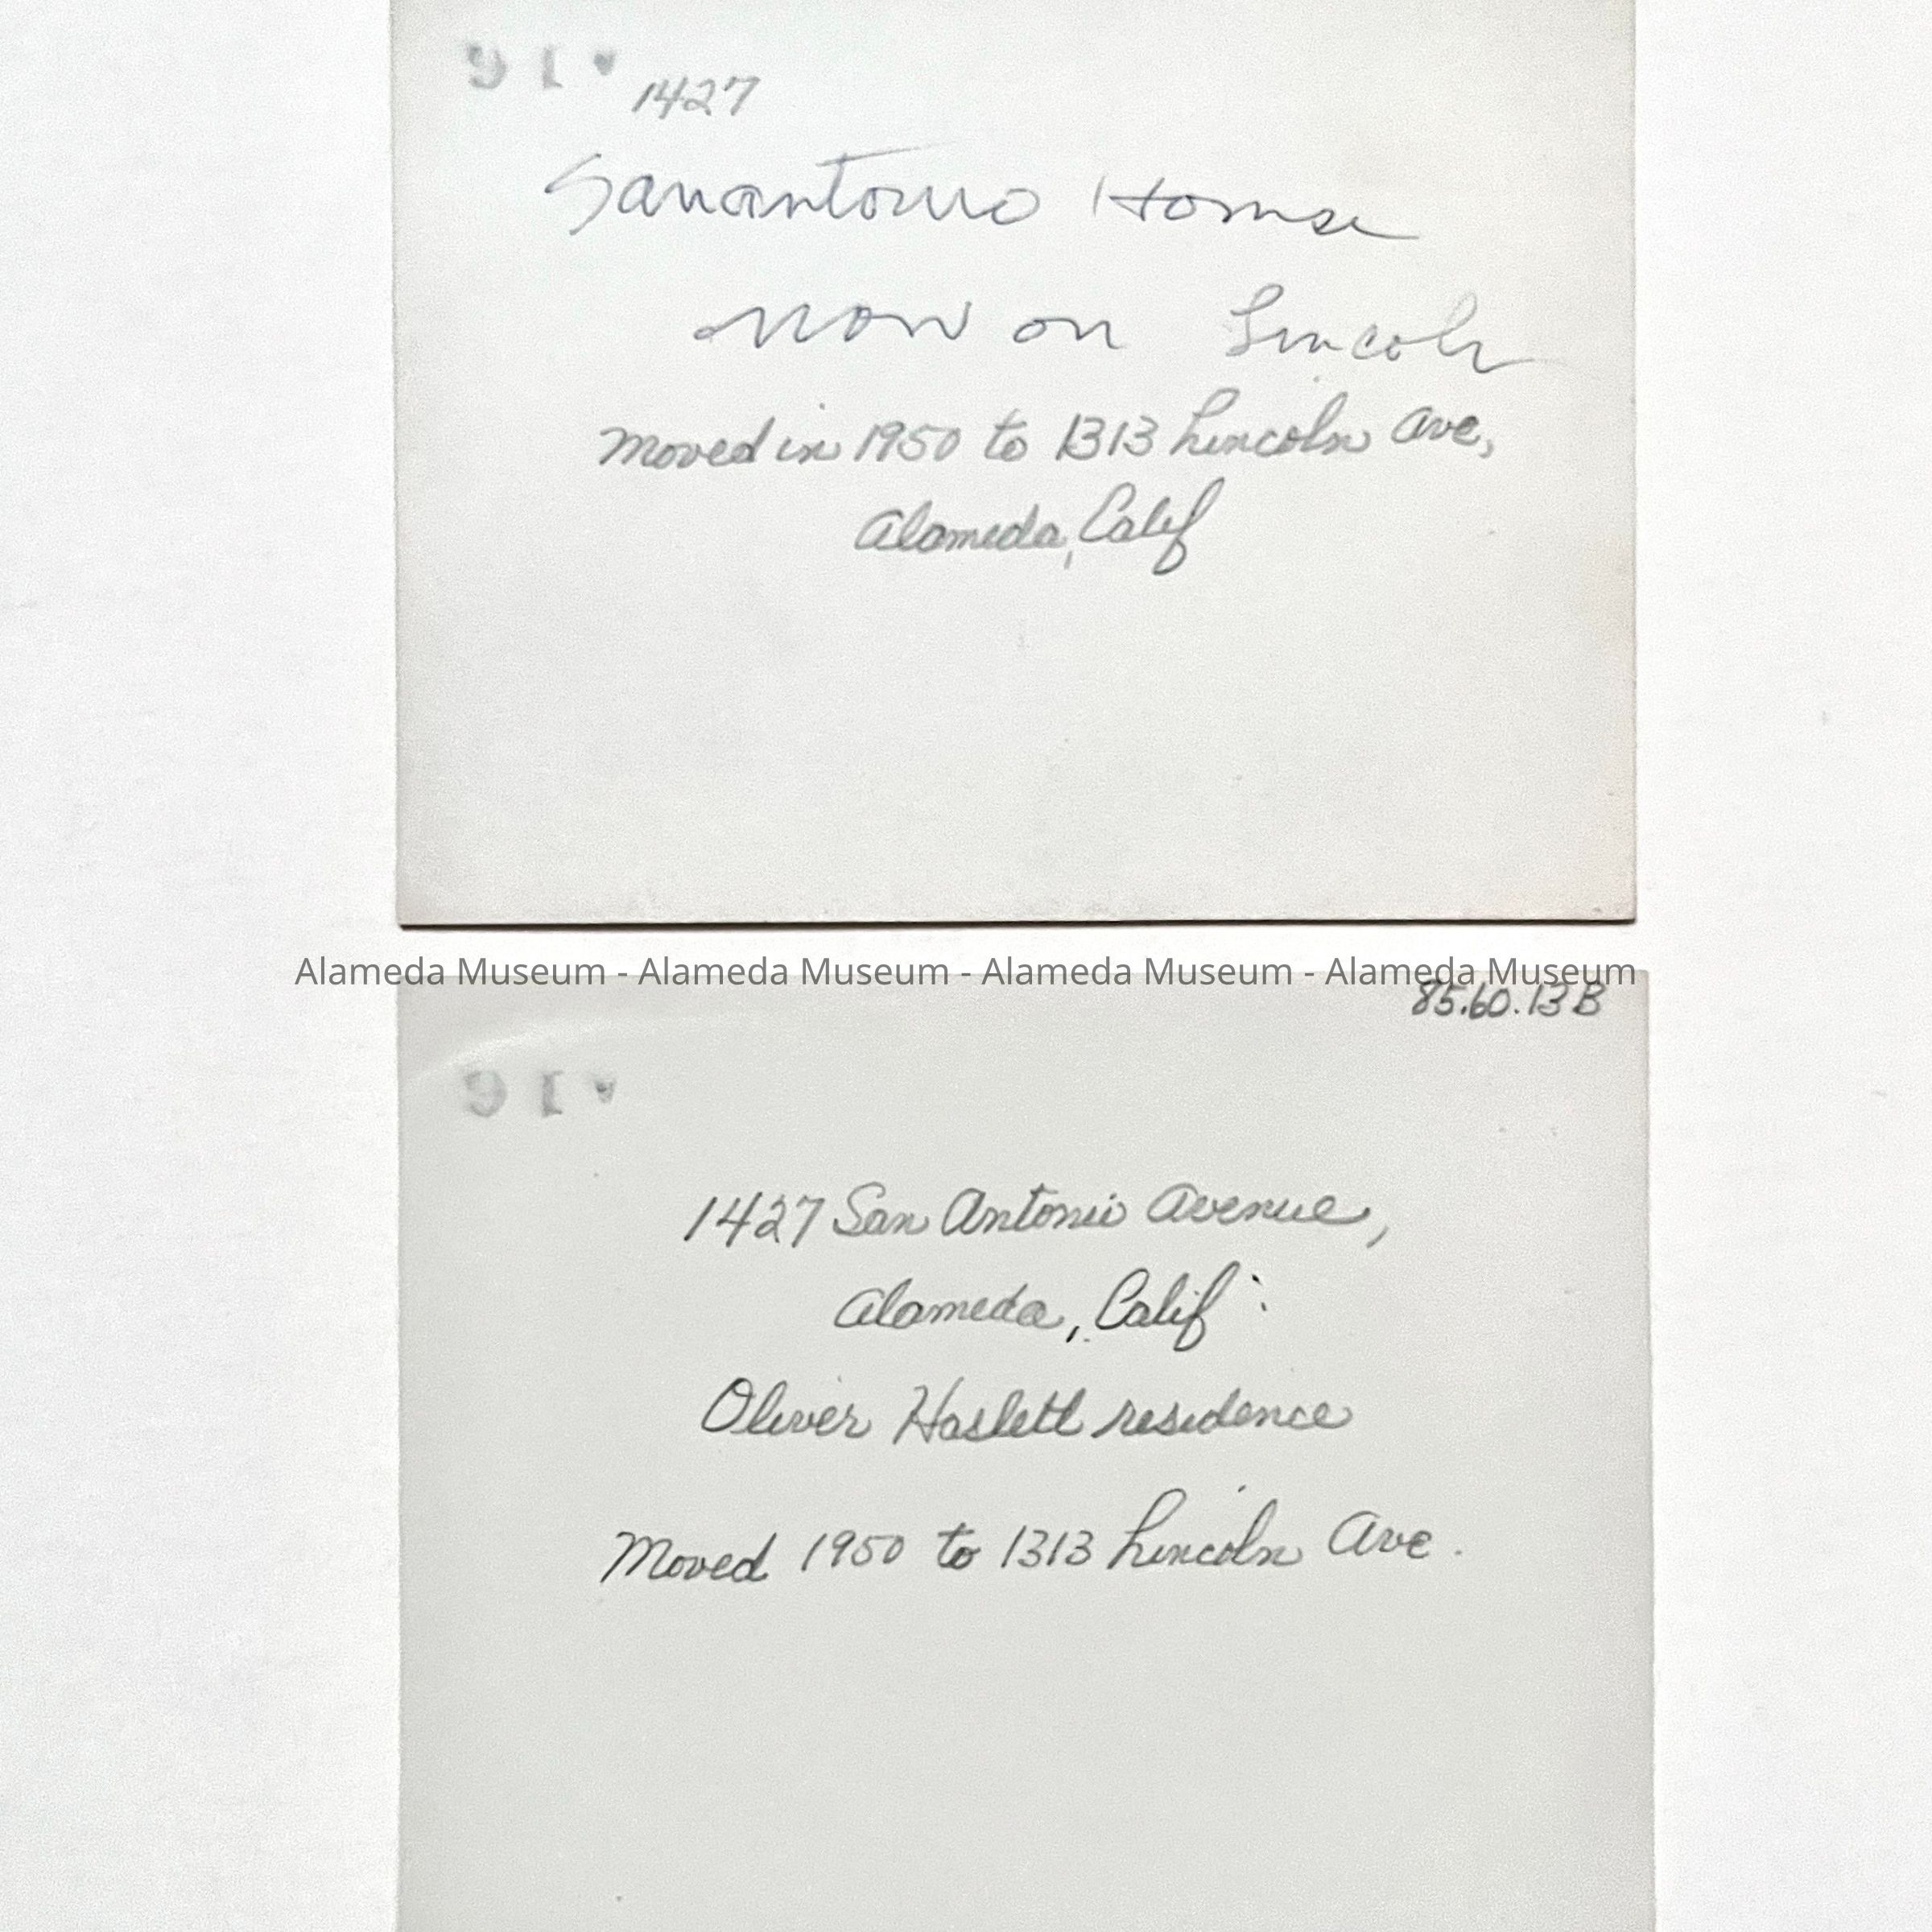 1427
Sanantonio Home
now on Lincoln
Moved in 1950 to 1313 Lincoln Ave,
Alameda, Calif
Alameda Museum - Alameda Museum - Alameda Museum - Alameda Museum
85.60.13B
1427 San Antonio Avenue,
Alameda, Calif.
Oliver Haslett residence
Moved 1950 to 1313 Lincoln Ave.